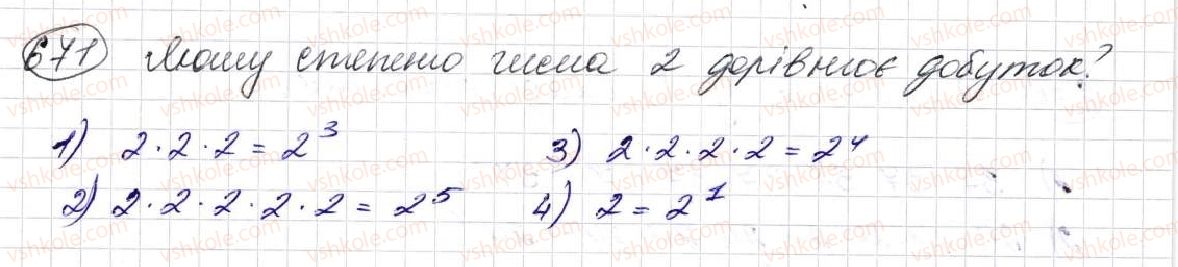 671 Якому степеню числа 2 дорівнює добуток?
1) 2·2·2 = 2³ 3) 2·2·2·2 = 2⁴
2) 2·2·2·2·2 = 2⁵ 4) 2 = 2¹